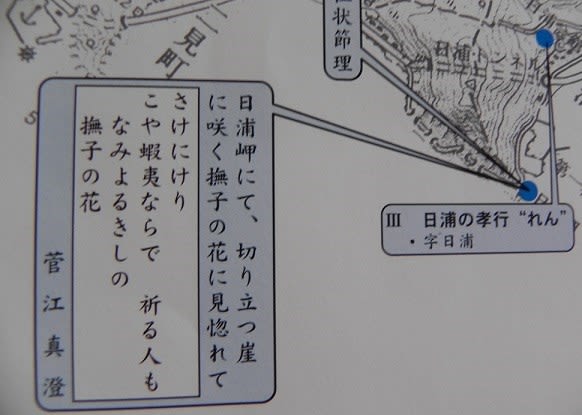 二見町
状節理
日浦トンネル
日浦岬にて、切り立つ崖
に咲く撫子の花に見惚れて
さけにけり
こや蝦夷ならで 祈る人も
なみよるきしの
撫子の花
菅江真澄
Ⅲ 日浦の孝行“れん”
・字日浦